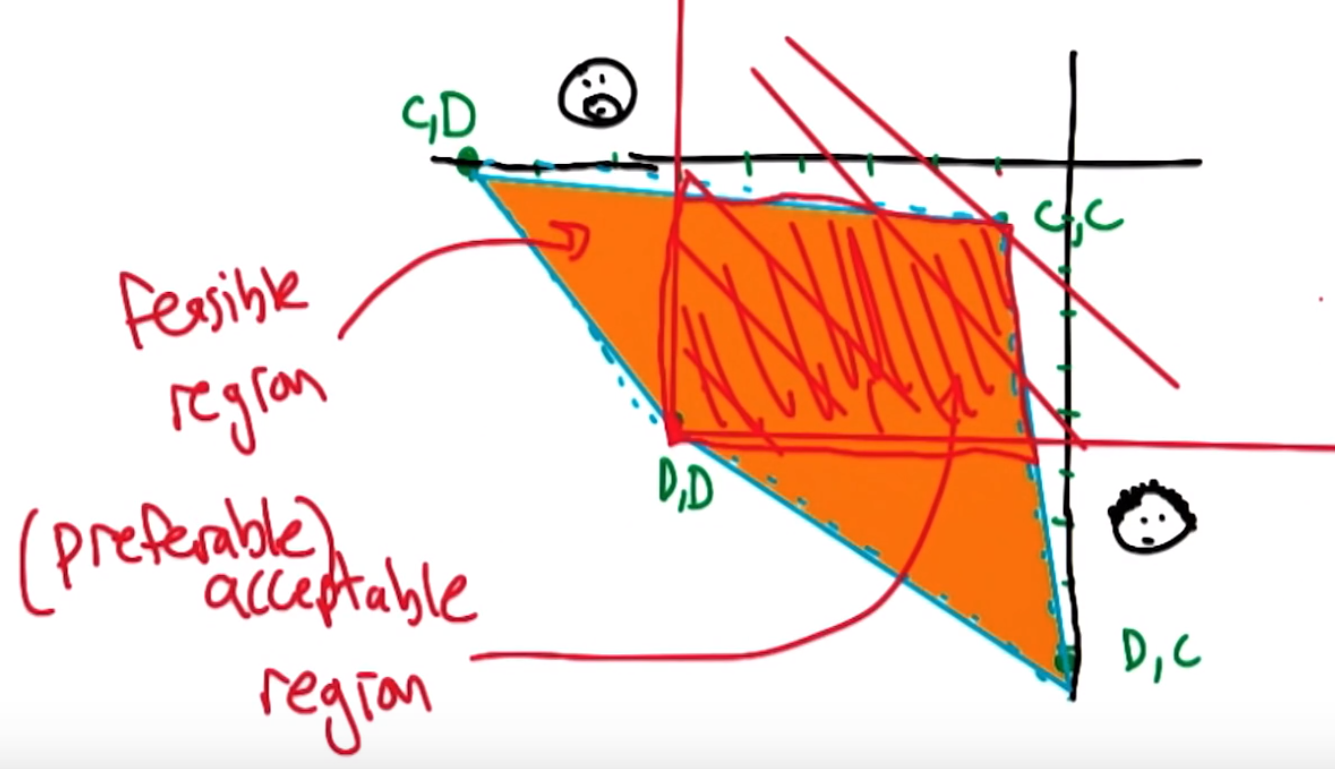 C,D
C,C
Feasible
region
D,D
(preferable)
acceptable
region
D,C